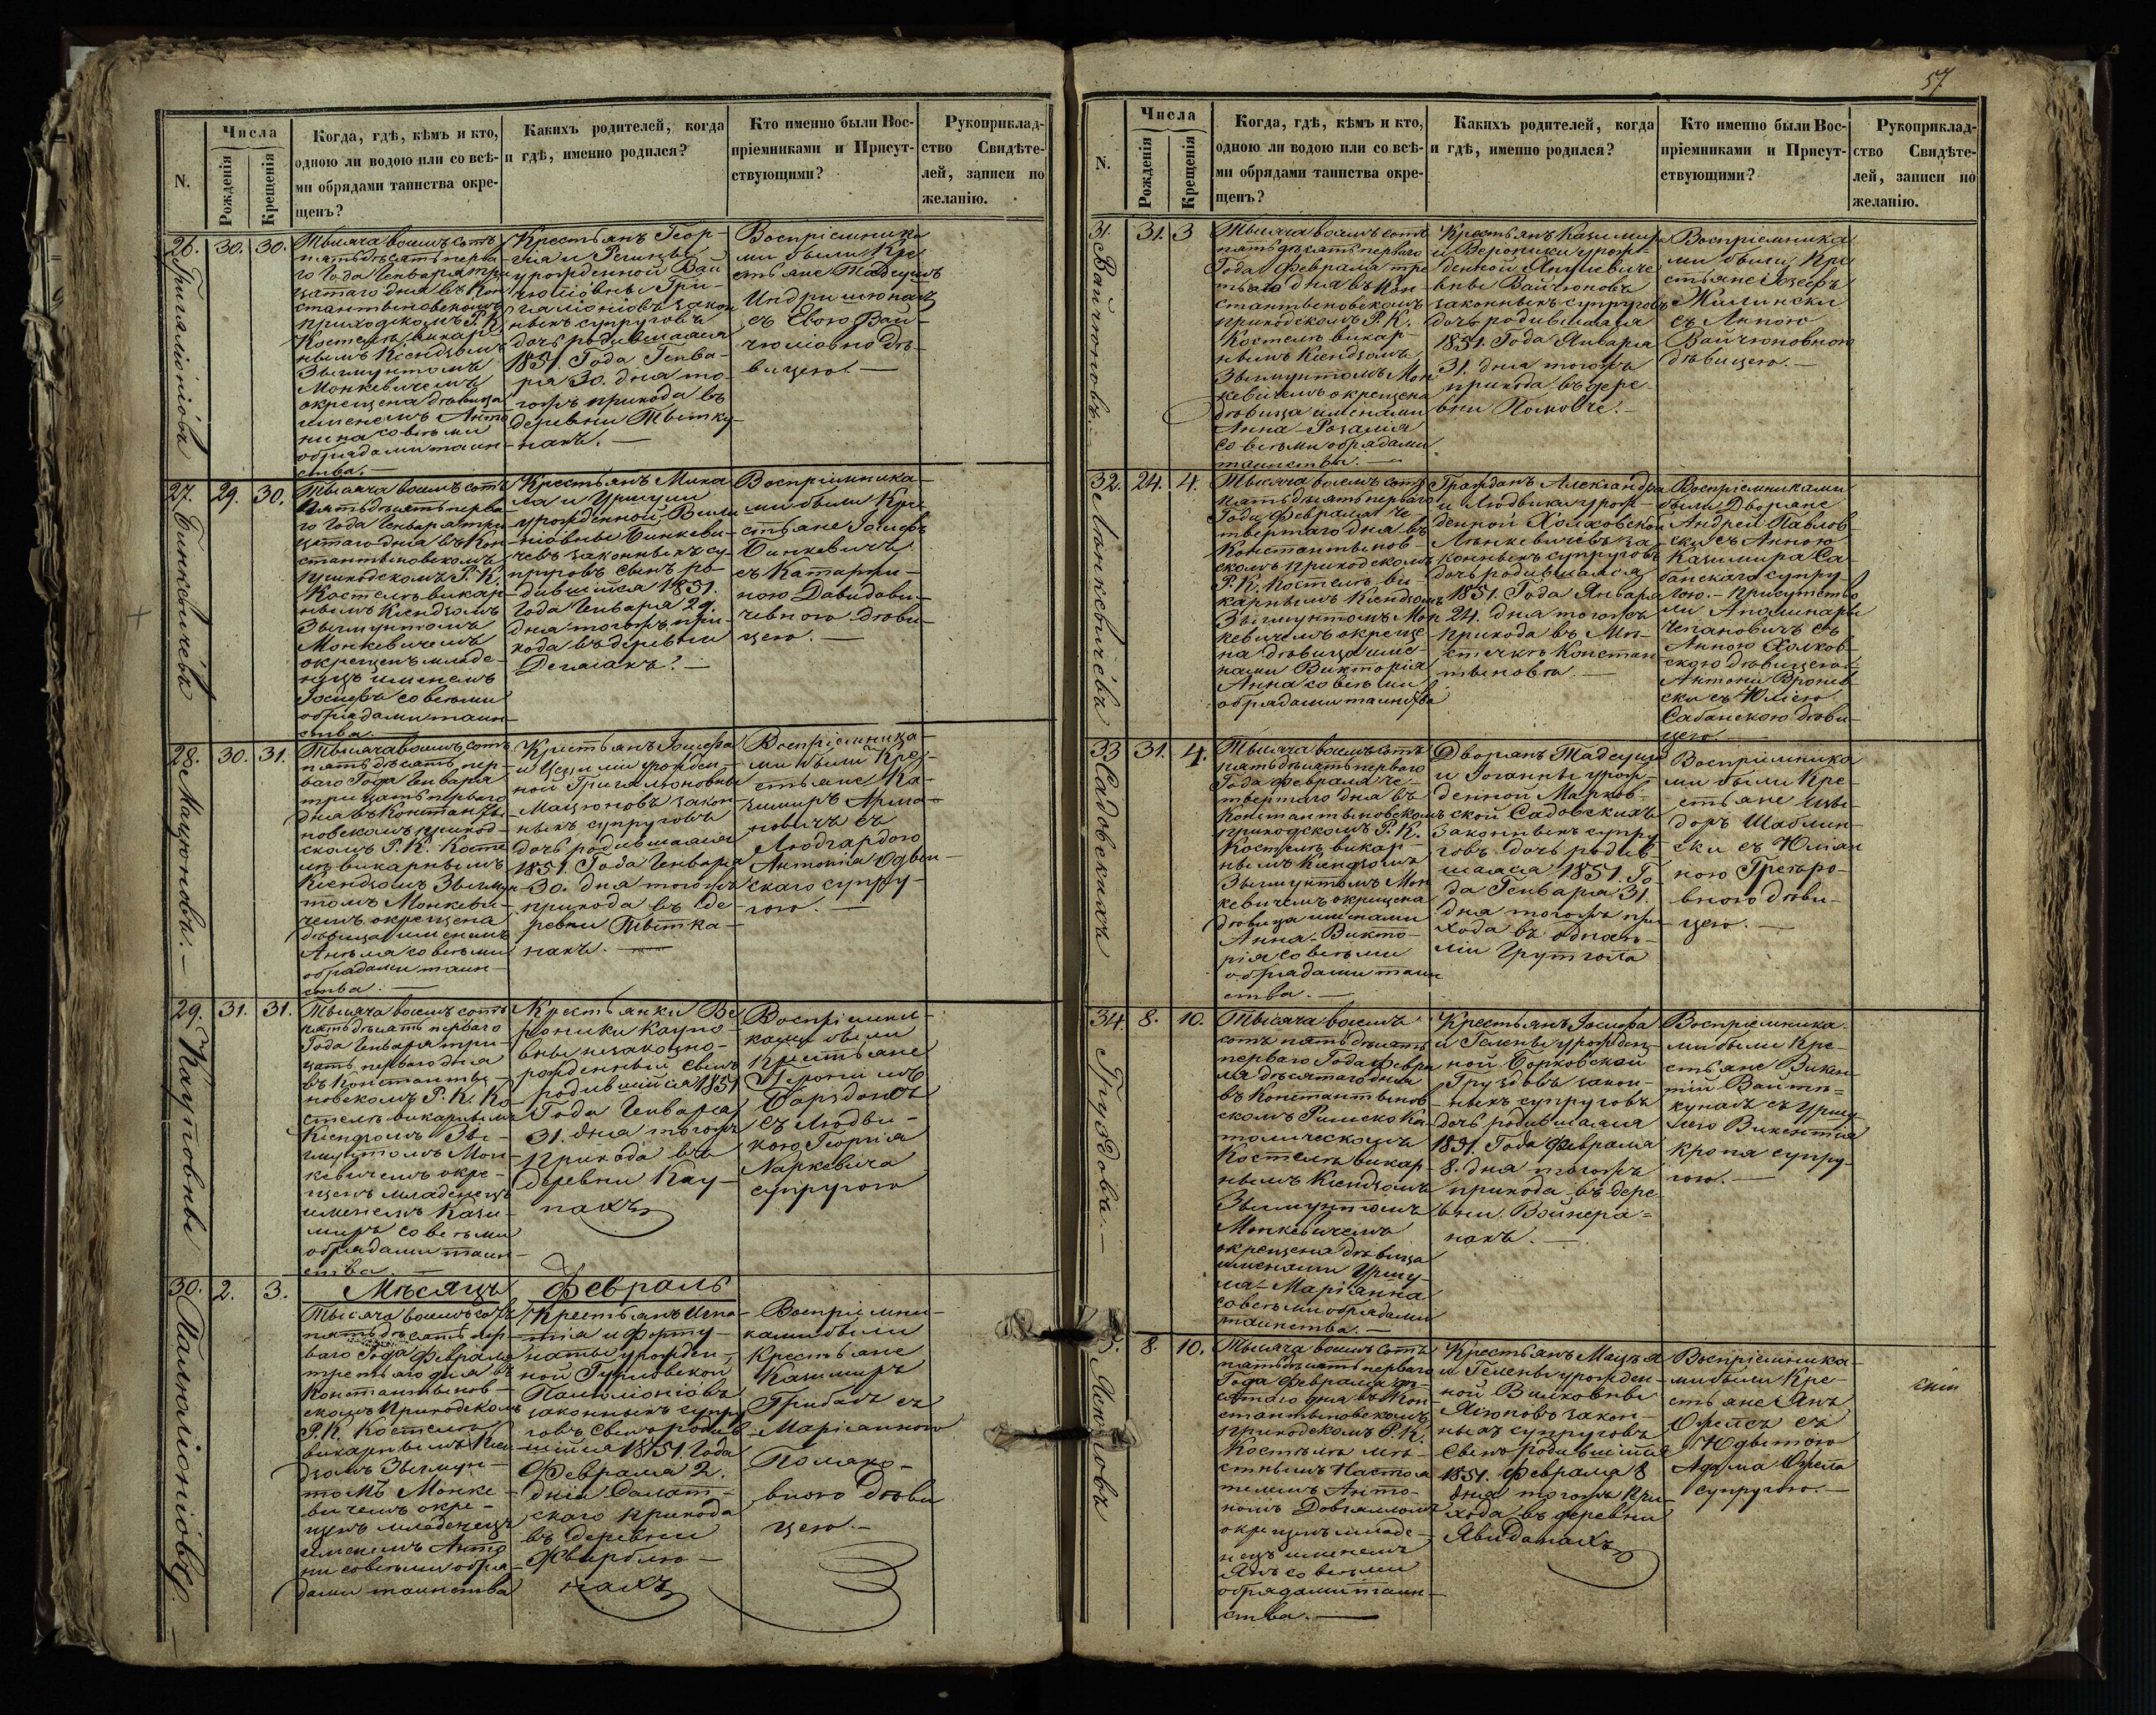 57
N.
Числа
Рожденія
Крещенія
Когда, гдѣ, кѣмъ и кто,
одною ли водою или со всѣ-
ми обрядами таинства окре-
щенъ?
Какихъ родителей, когда
и гдѣ, именно родился?
Кто именно были Вос-
пріемниками и Присут-
ствующими?
Рукоприклад-
ство Свидѣте-
лей, записи по
желанію.
26.
30.
30.
Тысяча восемъ сотъ
пятьдѣсятъ перва
го Года Генваря три
цатаго дня въ Кон
стантыновскомъ
приходскомъ Р. К.
Костелѣ викар
нымъ Ксендзомъ
Зыгмунтомъ
Монкевичемъ
окрещена дѣвица
именемъ Анто
нина со всѣми
обрядами таин-
ства. —
Крестьянъ Геор-
гія и
урожденной Вай
закон
ныхъ супруговъ
дочь родившаяся
1851 Года Генва-
ря 30. дня то-
гожъ прихода въ
деревни
Воспріемника
ми были Кре
стьяне Тадеушъ
съ Евою Вай-
чюловно дѣ-
вицею. —
27.
29.
30.
Бинкевичевъ
Тысяча восемъ сотъ
пятьдѣсятъ перва
го Года Генваря три
цатаго дня въ Кон
стантыновскомъ
приходскомъ Р. К.
Костелѣ викар
нымъ Ксендзомъ
Зыгмунтомъ
Монкевичемъ
окрещенъ младе-
нецъ именемъ
Іосифъ со всѣми
обрядами таин-
ства.
Крестьянъ Миха
ла и Уршули
урожденной
Бинкеви-
чевъ законныхъ су-
пруговъ сынъ ро-
дившійся 1851.
Года Генваря 29.
дня тогожъ при-
хода въ деревни
Воспріемника-
ми были Кре-
стьяне Іосифъ
Бинкевичъ
съ Катаржи-
ною Давидови-
чевною дѣви-
цею. —
28.
30.
31.
Мацюновъ. —
Тысяча восемъ сотъ
пятьдѣсятъ пер-
ваго Года Генваря
трицать перваго
дня въ Константы
новскомъ приход-
скомъ Р. К. Косте
лѣ викарнымъ
Ксендзомъ Зыгмун-
томъ Монкеви-
чемъ окрещена
дѣвица именемъ
Анѣля со всѣми
обрядами таин-
ства. —
Крестьянъ Іосифа
и Цецилии урожден-
ной Григалюновны
Мацюновъ закон-
ныхъ супруговъ
дочь родившаяся
1851. Года Генваря
30. дня тогожъ
прихода въ де-
ревни
Воспріемника-
ми были Кре-
стьяне Ка-
зимиръ
съ
Людгардою
Антонія
скаго супру-
гою. —
29.
31.
31.
Кауповны
Тысяча восемъ сотъ
пятьдѣсятъ перваго
Года Генваря три-
цать перваго дня
въ Константы-
новскомъ Р. К. Ко-
стелѣ викарнымъ
Ксендзомъ Зы-
гмунтомъ Мон-
кевичемъ окре-
щенъ младенецъ
именемъ Кази-
миръ со всѣми
обрядами таин-
ства. —
Крестьянки Ве
роники Каупо-
вны незаконно-
рожденный сынъ
родившійся 1851
Года Генваря
31. дня тогожъ
прихода въ
деревни Кау-
пахъ
Воспріемни-
ками были
Крестьяне
съ Людви-
кою Георгія
Наркевича
супругою
Мѣсяцъ Февраль
30.
2.
3.
Тысяча восемъ сотъ
пятьдѣсятъ пер-
ваго Года Февраля
третьяго дня въ
Константынов-
скомъ Приходскомъ
Р. К. Костелѣ
викарнымъ Ксен
дзомъ Зыгмун-
томъ Монке-
вичемъ окре-
щенъ младенецъ
именемъ Анто
ни со всѣми обря-
дами таинства
Крестьянъ Игна-
тія и Форту-
наты урожден-
ной
законныхъ супру
говъ сынъ родив-
шійся 1851. Года
Февраля 2.
дня
скаго прихода
въ деревни
Воспріемни-
ками были
Крестьяне
Казимиръ
Грибасъ съ
Маріанною
вною дѣви
цею. —
N.
Числа
Рожденія
Крещенія
Когда, гдѣ, кѣмъ и кто,
одною ли водою или со всѣ-
ми обрядами таинства окре-
щенъ?
Какихъ родителей, когда
и гдѣ, именно родился?
Кто именно были Вос-
пріемниками и Присут-
ствующими?
Рукоприклад-
ство Свидѣте-
лей, записи по
желанію.
31.
31.
3
Вайчюновъ. —
Тысяча восемъ сотъ
пятьдѣсятъ перваго
Года Февраля тре
тьяго дня въ Кон-
стантыновскомъ
приходскомъ Р. К.
Костелѣ викар-
нымъ Ксендзомъ
Зыгмунтомъ Мон
кевичемъ окрещена
дѣвица именами
Анна-Розалія
со всѣми обрядами
таинства. —
Крестьянъ Казимира
и Вероники урож-
денной
вны Вайчюновъ
законныхъ супруговъ
дочь родившаяся
1851. Года Января
31. дня тогожъ
прихода въ дере-
вни
Воспріемника
ми были Кре
стьяне Іозефъ
съ Анною
Вайчюновною
дѣвицею. —
32.
24.
4.
Тысяча восемъ сотъ
пятьдѣсятъ перваго
Года Февраля че-
твертаго дня въ
Константынов-
скомъ приходскомъ
Р. К. Костелѣ ви-
карнымъ Ксендзомъ
Зыгмунтомъ Мон
кевичемъ окреще-
на дѣвица име-
нами Викторія
Анна со всѣми
обрядами таинства
Гражданъ Александра
и Людвики урож-
денной Холховской
за-
конныхъ супруговъ
дочь родившаяся
1851. Года Января
24. дня тогожъ
прихода въ Мѣ-
стечкѣ Констан
тыновѣ. —
Воспріемниками
были Дворяне
Андрей Павлов-
ски съ Анною
Казимира Са-
банскаго супру-
гою. — Присутство
ли Аполинары
съ
Анною Холхов-
скою дѣвицею.
Антони Вронев-
ски съ Юліею
Сабанскою дѣви
цею
33
31.
4.
Садовскихъ
Тысяча восемъ сотъ
пятьдѣсятъ перваго
Года Февраля че-
твертаго дня въ
Константыновскомъ
приходскомъ Р. К.
Костелѣ викар-
нымъ Ксендзомъ
Зыгмунтомъ Мон
кевичемъ окрещена
дѣвица именами
Анна-Викто-
рія со всѣми
обрядами таин
ства. —
Дворянъ Тадеуша
и Іоганны урож-
денной Марков-
ской Садовскихъ
законныхъ супру
говъ дочь родив-
шаяся 1851. Го-
да Генваря 31.
дня тогожъ при
хода въ
Воспріемника
ми были Кре-
стьяне Изы-
доръ
ски съ Юліан
ною
вною дѣви-
цею. —
34
8.
10.
Груздовъ. —
Тысяча восемъ
сотъ пятьдѣсятъ
перваго Года Февра
ля дѣсятаго дня
въ Константынов
скомъ Римско Ка-
толическомъ
Костелѣ викар-
нымъ Ксендзомъ
Зыгмунтомъ
Монкевичемъ
окрещена дѣвица
именами Уршу-
ля-Маріанна
со всѣми обрядами
таинства. —
Крестьянъ Іосифа
и Гелены урожден-
ной Борковской
Груздовъ закон-
ныхъ супруговъ
дочь родившаяся
1851. Года Февраля
8. дня тогожъ
прихода въ дере
вни
Воспріемника
ми были Кре-
стьяне Викен-
тій
съ Уршу
лею Викентія
супру-
гою. —
8.
10.
Тысяча восемъ сотъ
пятьдѣсятъ перваго
Года Февраля дѣ-
сятаго дня въ Кон-
стантыновскомъ
приходскомъ Р. К.
Костелѣ мѣ-
стнымъ Настоя
телемъ Анто-
номъ
окрещенъ младе-
нецъ именемъ
Янъ со всѣми
обрядами таин-
ства. —
Крестьянъ Мацѣя
и Гелены урожден-
ной
закон-
ныхъ супруговъ
сынъ родившійся
1851. Февраля 8
дня тогожъ при-
хода въ деревни
Воспріемника-
ми были Кре-
стьяне Янъ
съ
Адама
супругою. —